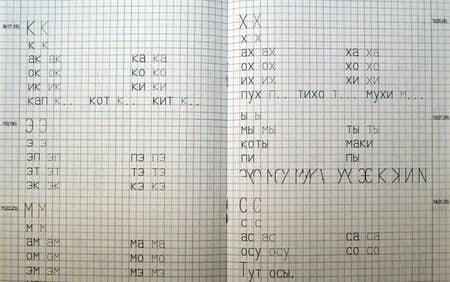 К К
к к
ак ак ка ка
ок ок ко ко
ик ик ки ки
кап к... кот к... кит к...
Э Э
э э
эп эп пэ пэ
эт эт тэ тэ
эк эк кэ кэ
М М
м м
ам ам ма ма
ом ом мо мо
эм эм мэ мэ
Х Х
х х
ах ах ха ха
ох ох хо хо
их их хи хи
пух п... тихо т.... мухи м...
ы ы
мы мы ты ты
коты маки
пи пы
С С
с с
ас ас са са
осу осу со со
Тут осы.